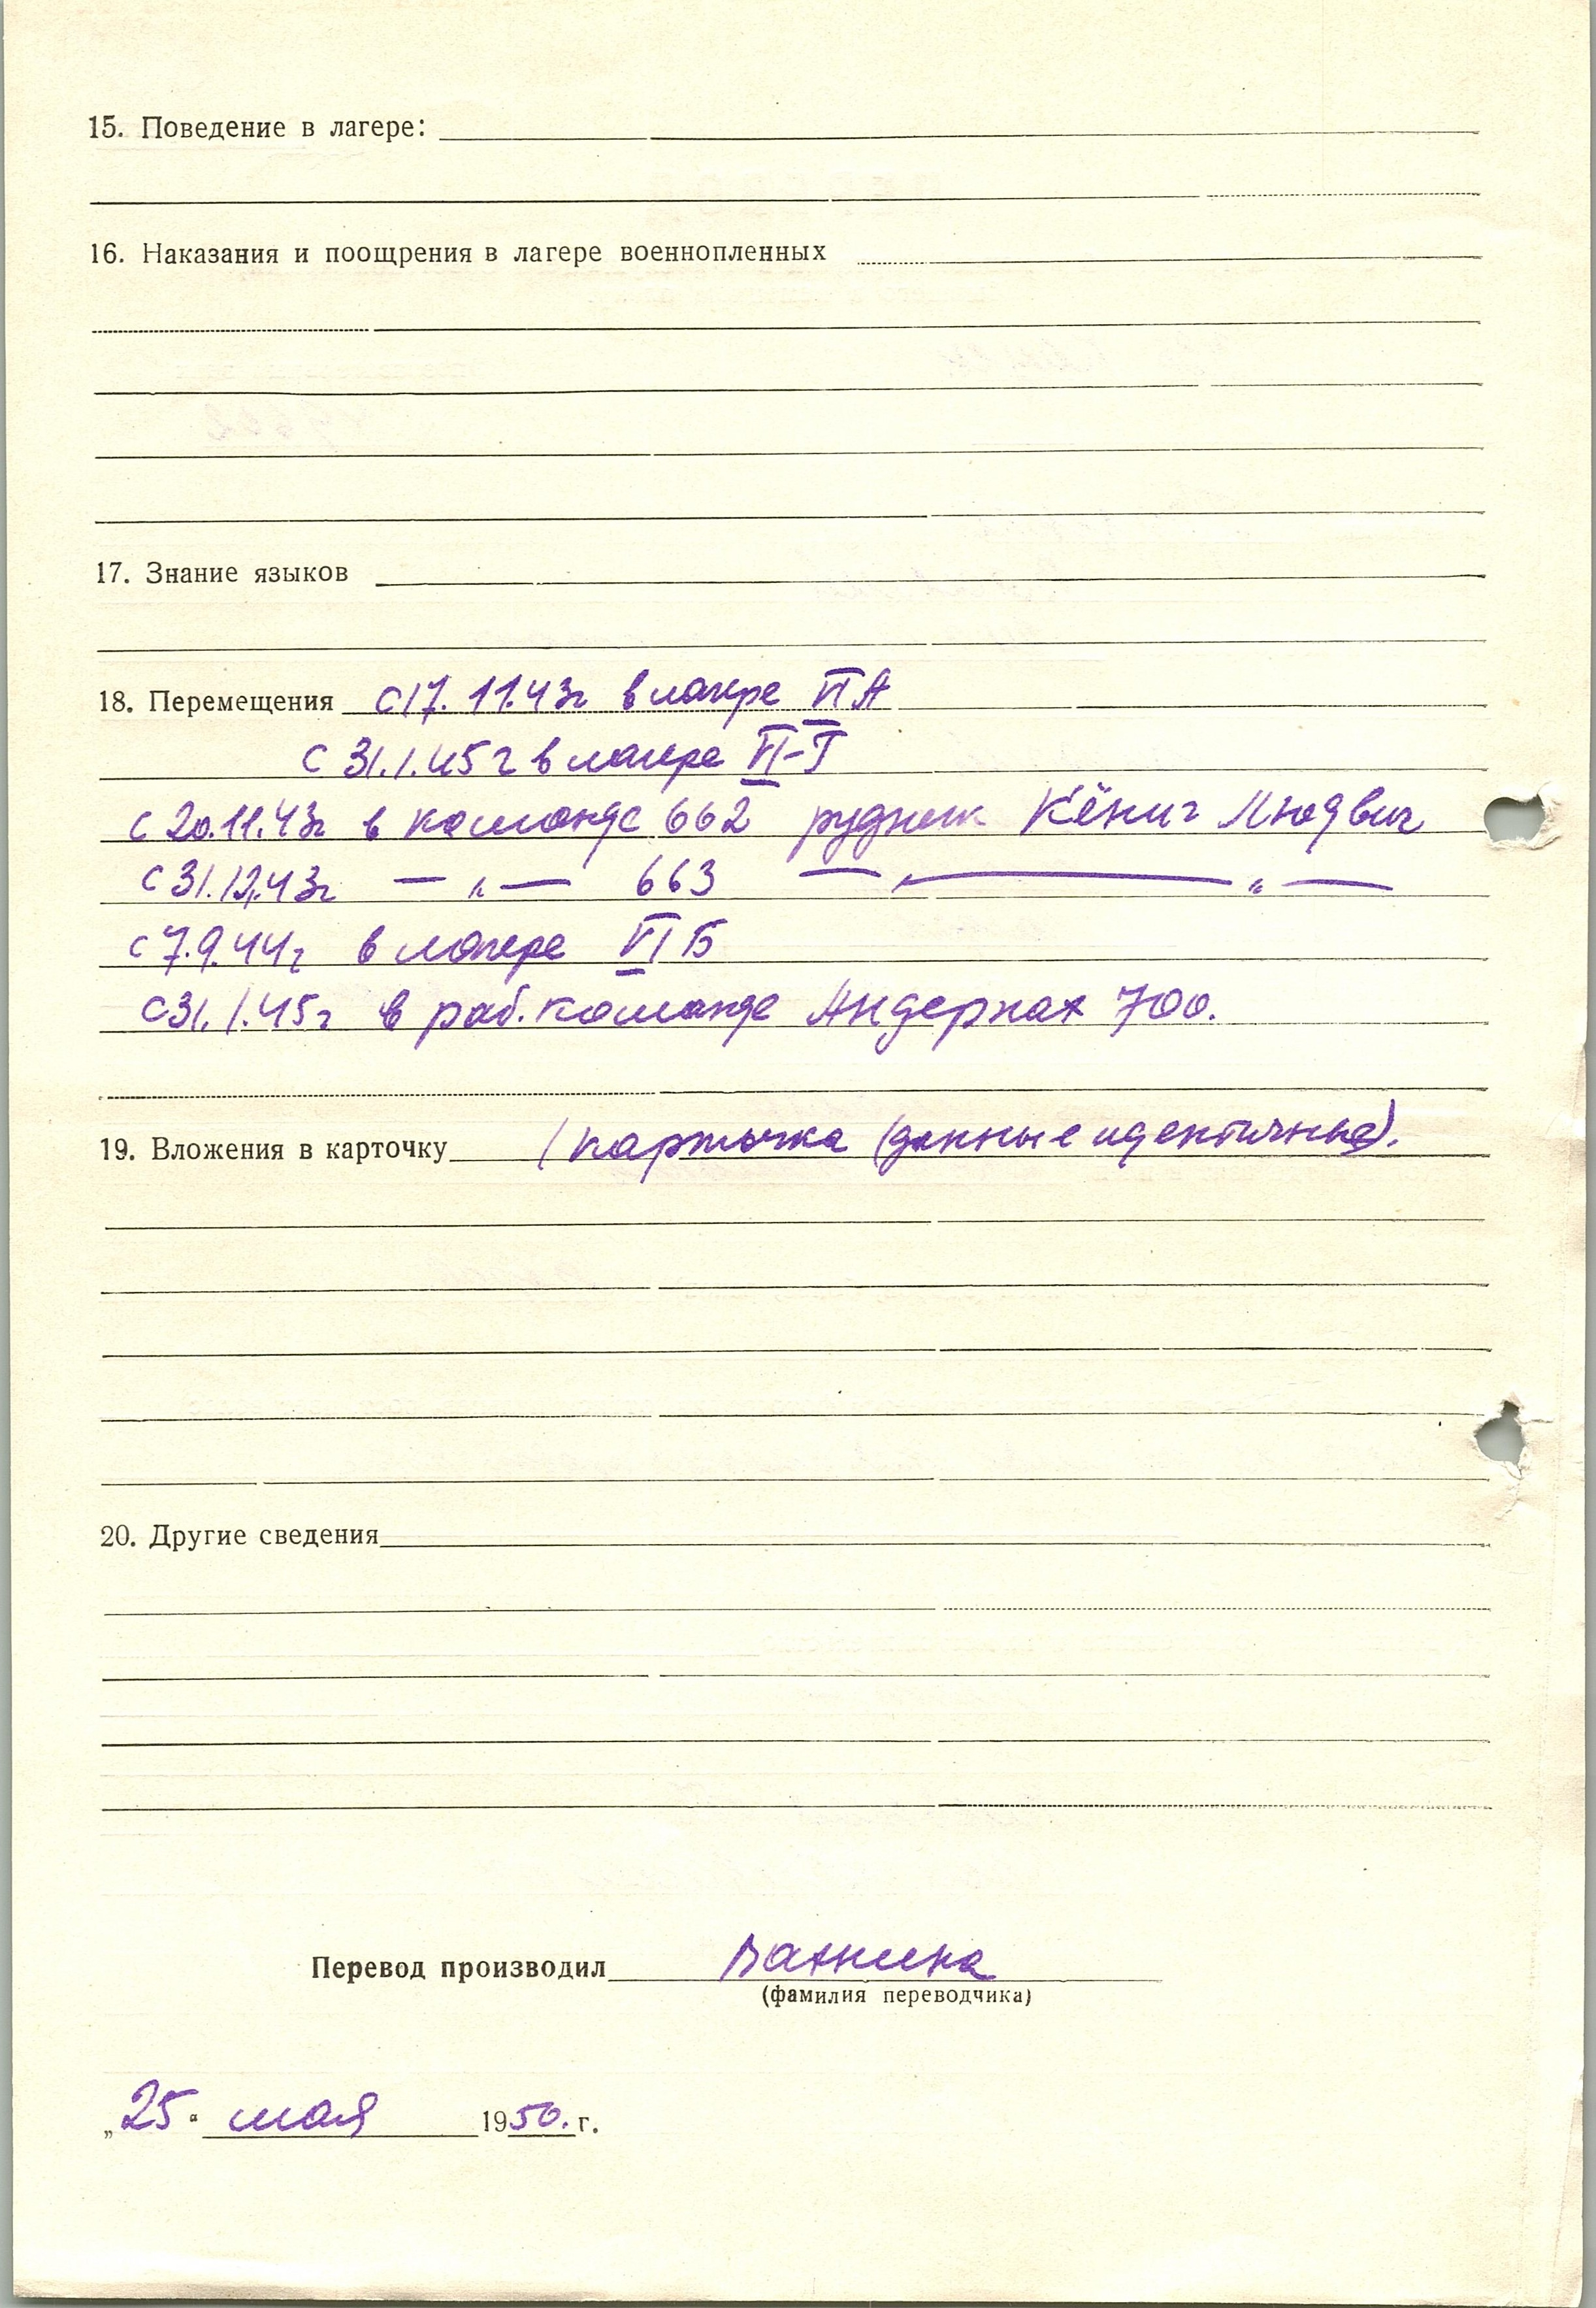 15. Поведение в лагере:
16. Наказания и поощрения в лагере военнопленных
17. Знание языков
18. Перемещения с 17.11.43г в лагере VI А
с 31.1.45 г в лагере VI-Г
с 20.11.43г в команде 662 рудник Кёниг Людвиг
с 31.12.43г — „ — 663 — „ — „ —
с 7.9.44г в лагере VI Б
с 31.1.45г в раб. команде Андернах 700.
19. Вложения в карточку 1 карточка (данные идентичные).
20. Другие сведения
Перевод производил Вахнина
(фамилия переводчика)
„25" мая 1950. г.